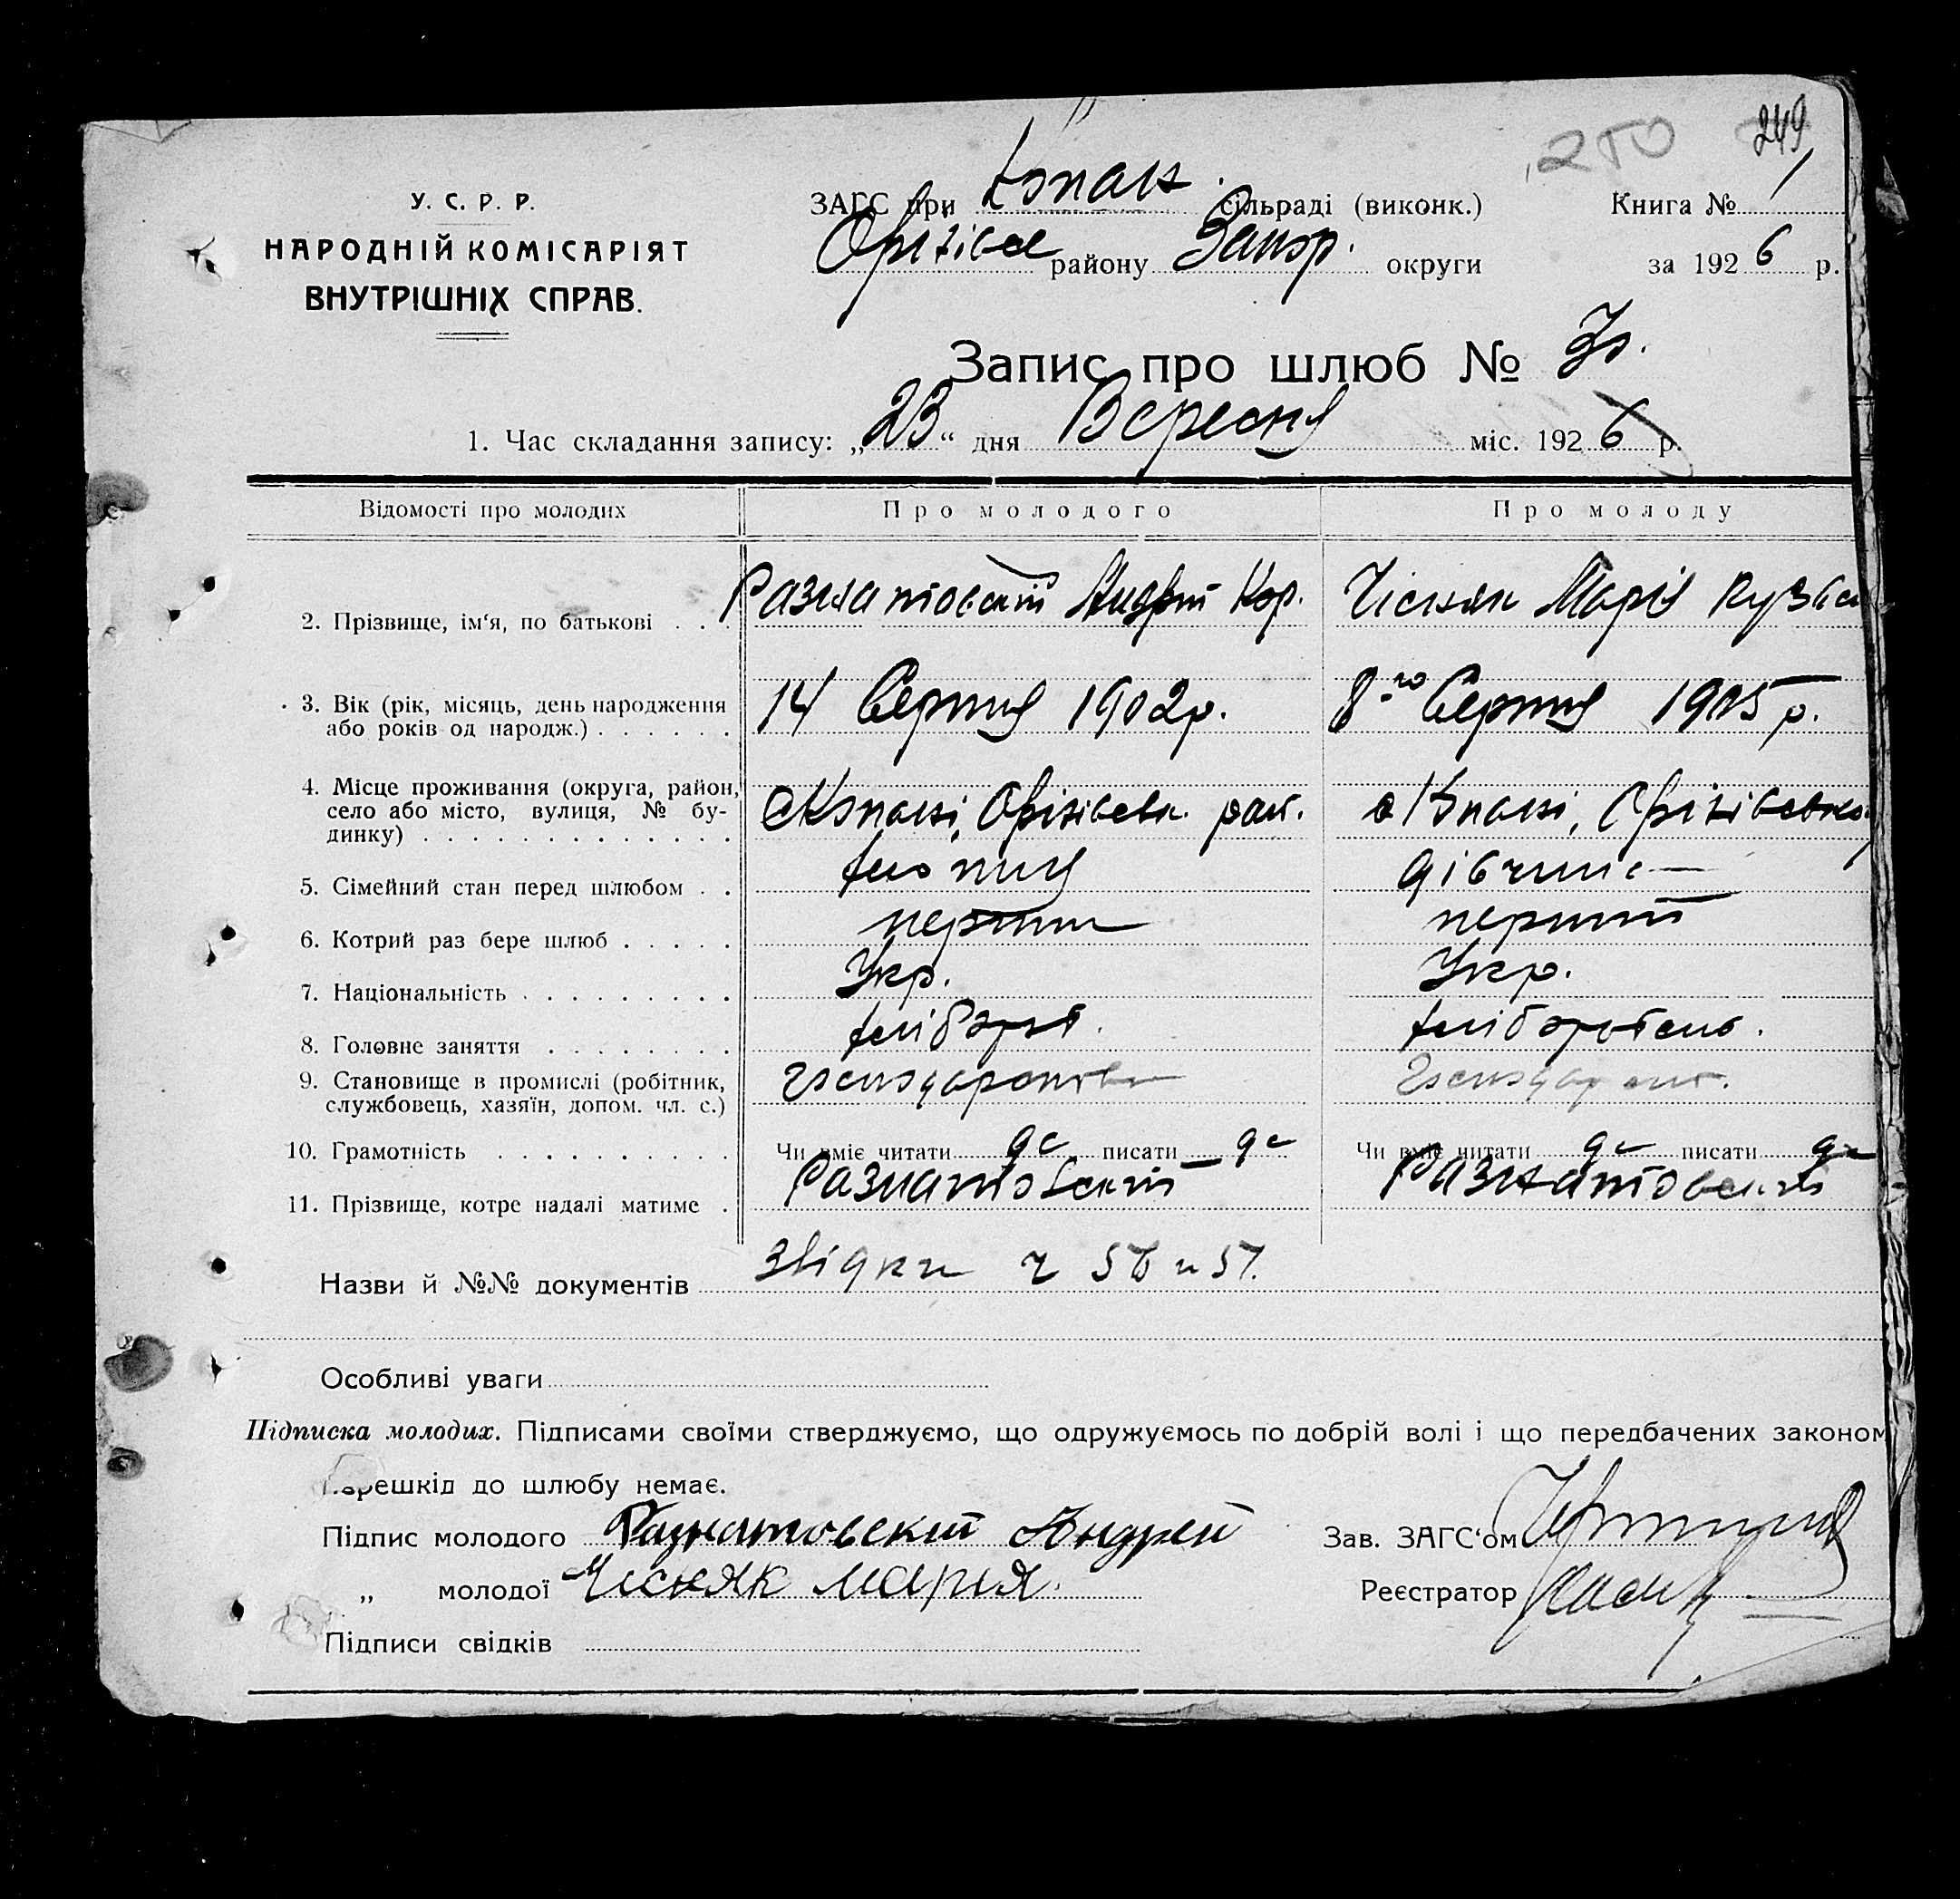 249
250
У. С. Р. Р.
НАРОДНІЙ КОМІСАРІЯТ
ВНУТРІШНІХ СПРАВ.
ЗАГС при Копан. сільраді (виконк.)
Книга № 1
Оріхівськ району Запор. округи
за 1926 р.
Запис про шлюб №
1. Час складання запису: „23“ дня Вересня міс. 1926 р.
Відомості про молодих
Про молодого
Про молоду
2. Прізвище, ім‘я, по батькові . . .
Разнатовский Андрій Кор.
Чісняк Марія Кузьм
3. Вік (рік, місяць, день народження
або років од народж.) . . . . . .
14 Серпня 1902 р.
8го Серпня 1905 р.
4. Місце проживання (округа, район,
село або місто, вулиця, № бу-
динку) . . . . . . . . . . . . .
с Копані, Оріхівськ. рай.
с Копані, Оріхівськ.
5. Сімейний стан перед шлюбом . .
дівчина
6. Котрий раз бере шлюб . . . . .
перший
перший
7. Національність . . . . . . . . .
Укр.
Укр.
8. Головне заняття . . . . . . . .
хлібороб.
9. Становище в промислі (робітник,
службовець, хазяїн, допом. чл. с.)
господарств
господар
10. Грамотність . . . . . . . . . .
Чи вміє читати да писати да
Чи вміє читати да писати да
11. Прізвище, котре надалі матиме .
Разнатовский
Разнатовский
Назви й №№ документів звідки ч 56 и 57.
Особливі уваги
Підписка молодих. Підписами своїми стверджуємо, що одружуємось по добрій волі і що передбачених законом
перешкід до шлюбу немає.
Підпис молодого Разнатовский Андрей
Зав. ЗАГС‘ом
„ молодої Чисняк Мария.
Реєстратор
Підписи свідків